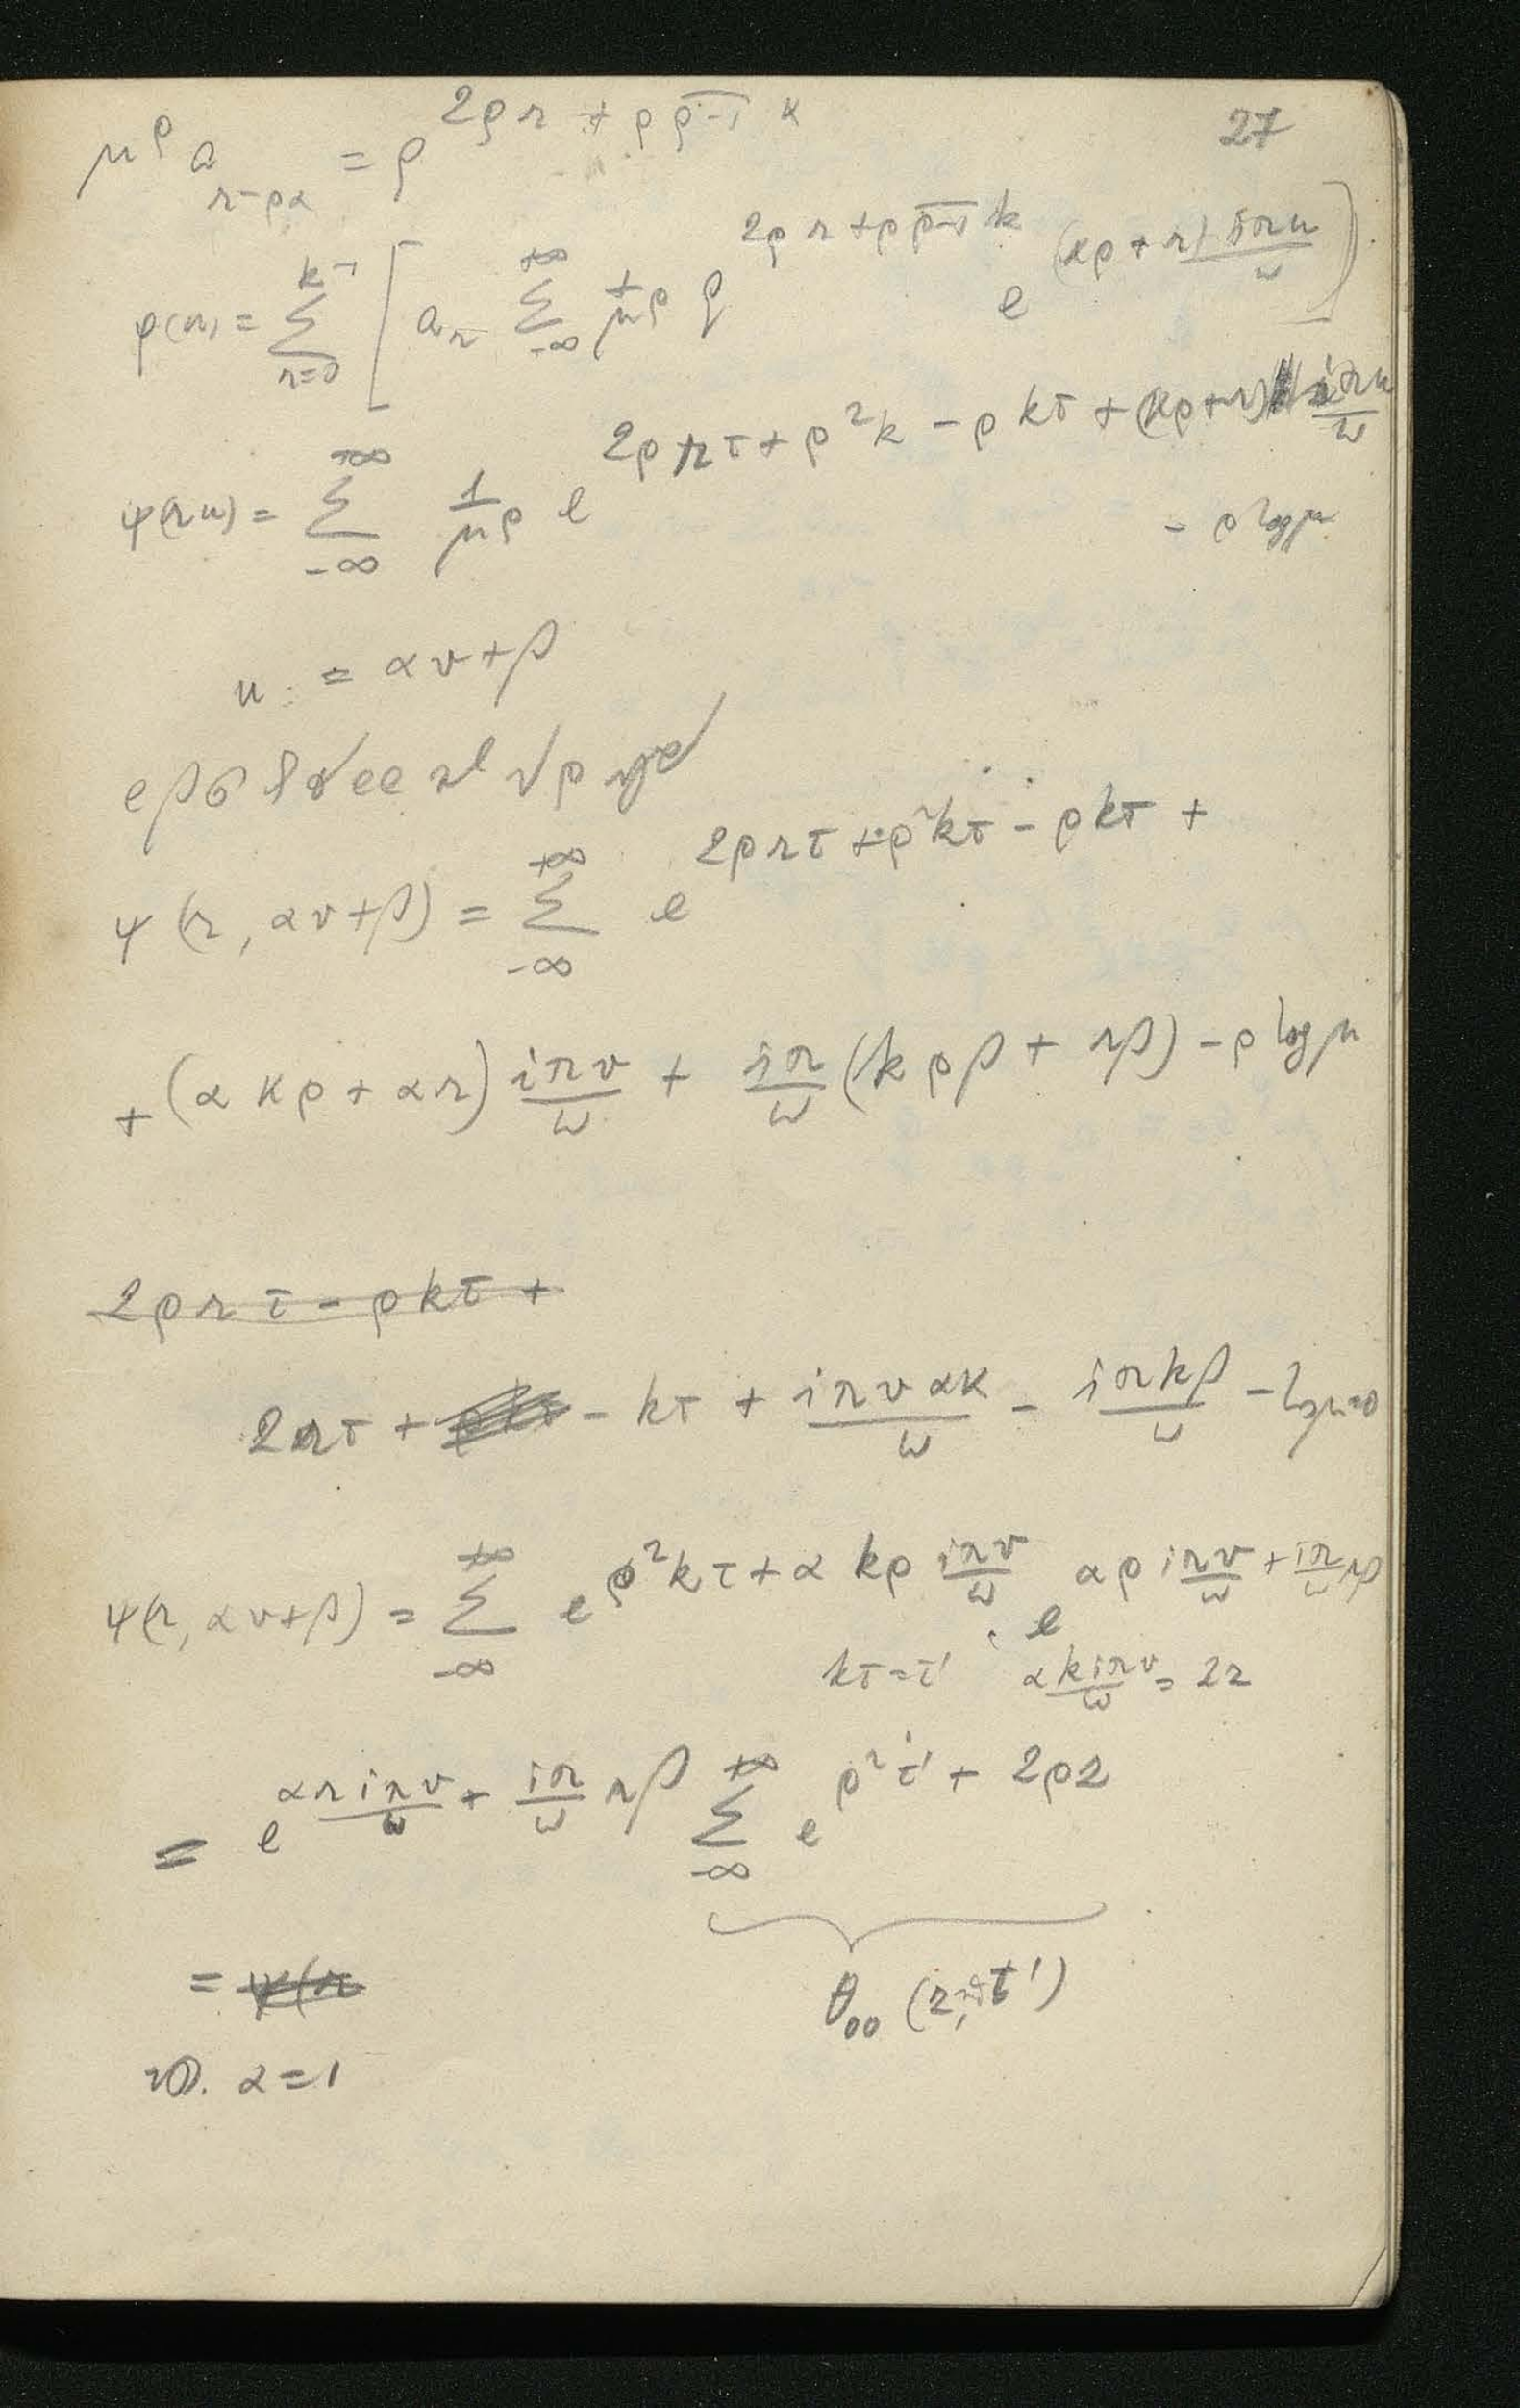 27
μ^ρ a_{r-ρα} = q^{2ρr + ρ\overline{ρ-1} k}
φ(u) = \sum_{r=0}^{k-1} [ a_r \sum_{-∞}^{+∞} \frac{1}{μ^ρ} q^{2ρr + ρ\overline{ρ-1} k} e^{(kρ+r)\frac{iπu}{ω}} ]
ψ(r u) = \sum_{-∞}^{+∞} \frac{1}{μ^ρ} e^{2ρrτ + ρ^2k - ρkτ + (kρ+r)\frac{iπu}{ω}}
- ρ log μ
u = αv + β
ψ(r, αv+β) = \sum_{-∞}^{+∞} e^{2ρrτ + ρ^2kτ - ρkτ +}
+ (αkρ + αr)\frac{iπv}{ω} + \frac{iπ}{ω}(kρβ + rβ) - ρ log μ
2ρrτ - ρkτ +
2rτ + - kτ + \frac{iπvαk}{ω} - \frac{iπkβ}{ω} - log μ=0
ψ(r, αv+β) = \sum_{-∞}^{+∞} e^{ρ^2kτ + αkρ\frac{iπv}{ω}} . e^{αρ\frac{iπv}{ω} + \frac{iπ}{ω}rβ}
kτ = τ' \frac{αkiπv}{ω} = 2z
= e^{\frac{αriπv}{ω} + \frac{iπ}{ω}rβ} \sum_{-∞}^{+∞} e^{ρ^2τ' + 2ρz}
= ψ(r
θ_{00}(z, τ')
α=1